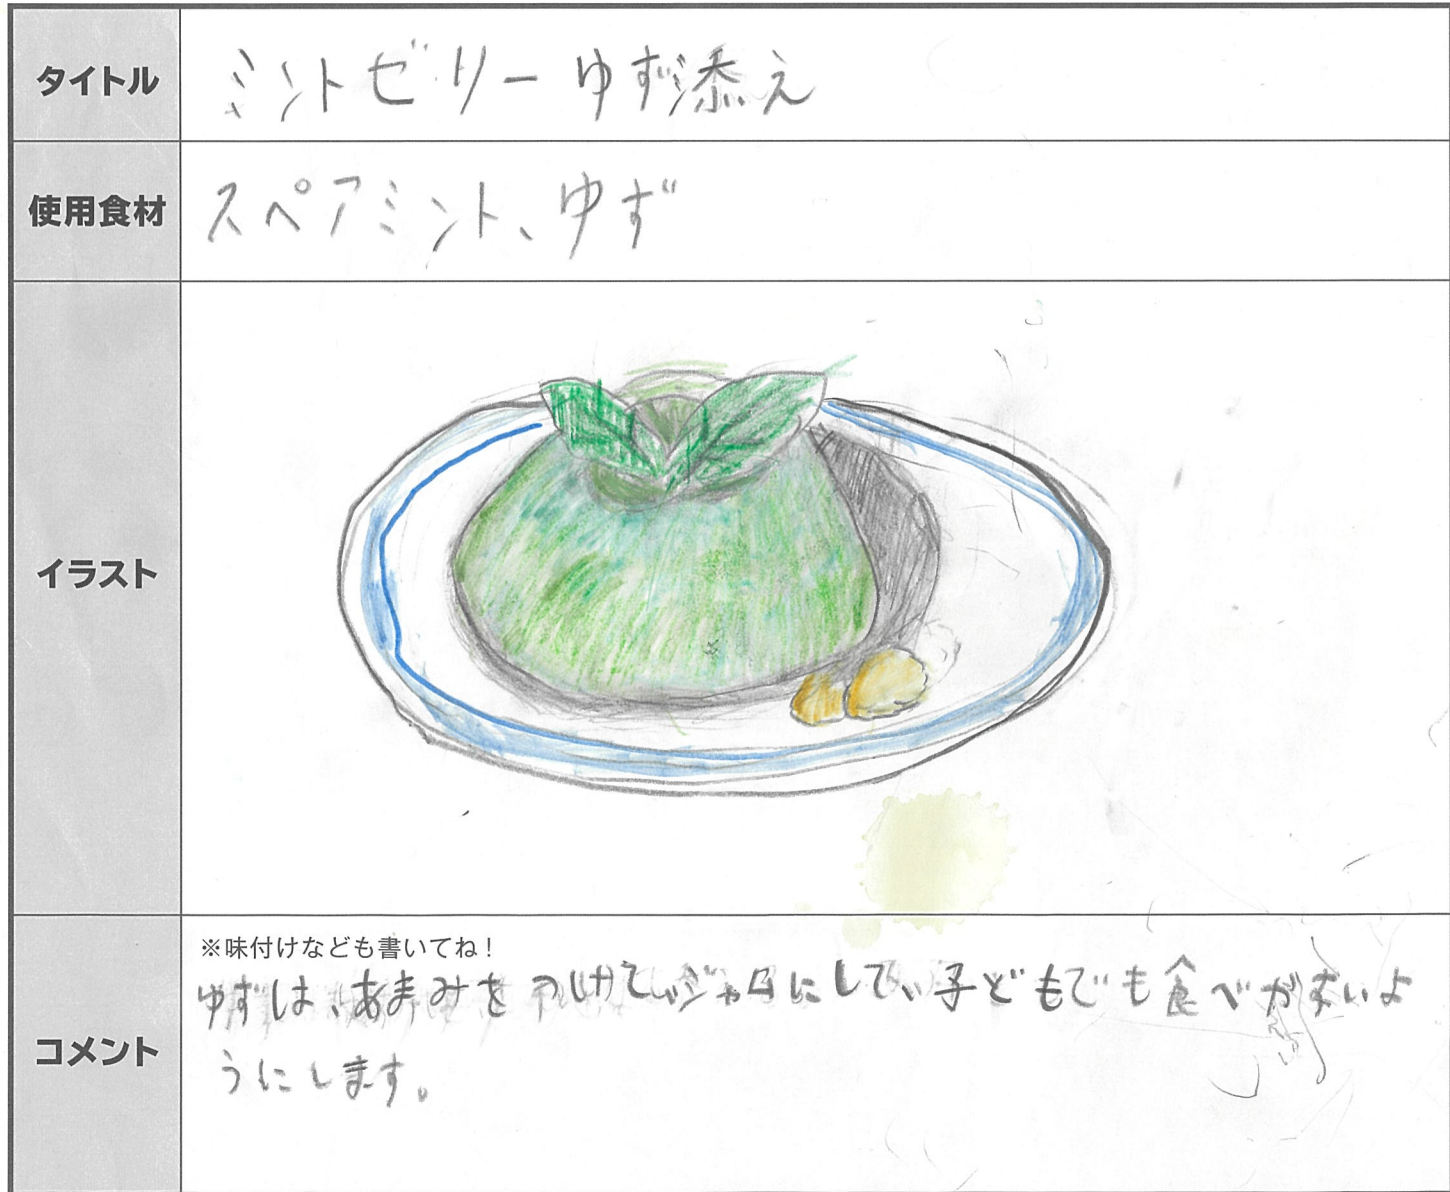 タイトル
ミントゼリーゆず添え
使用食材
スペアミント、ゆず
イラスト
コメント
※味付けなども書いてね！
ゆずは、あまみをつけて、ジャムにして、子どもでも食べがすいよ
うにします。